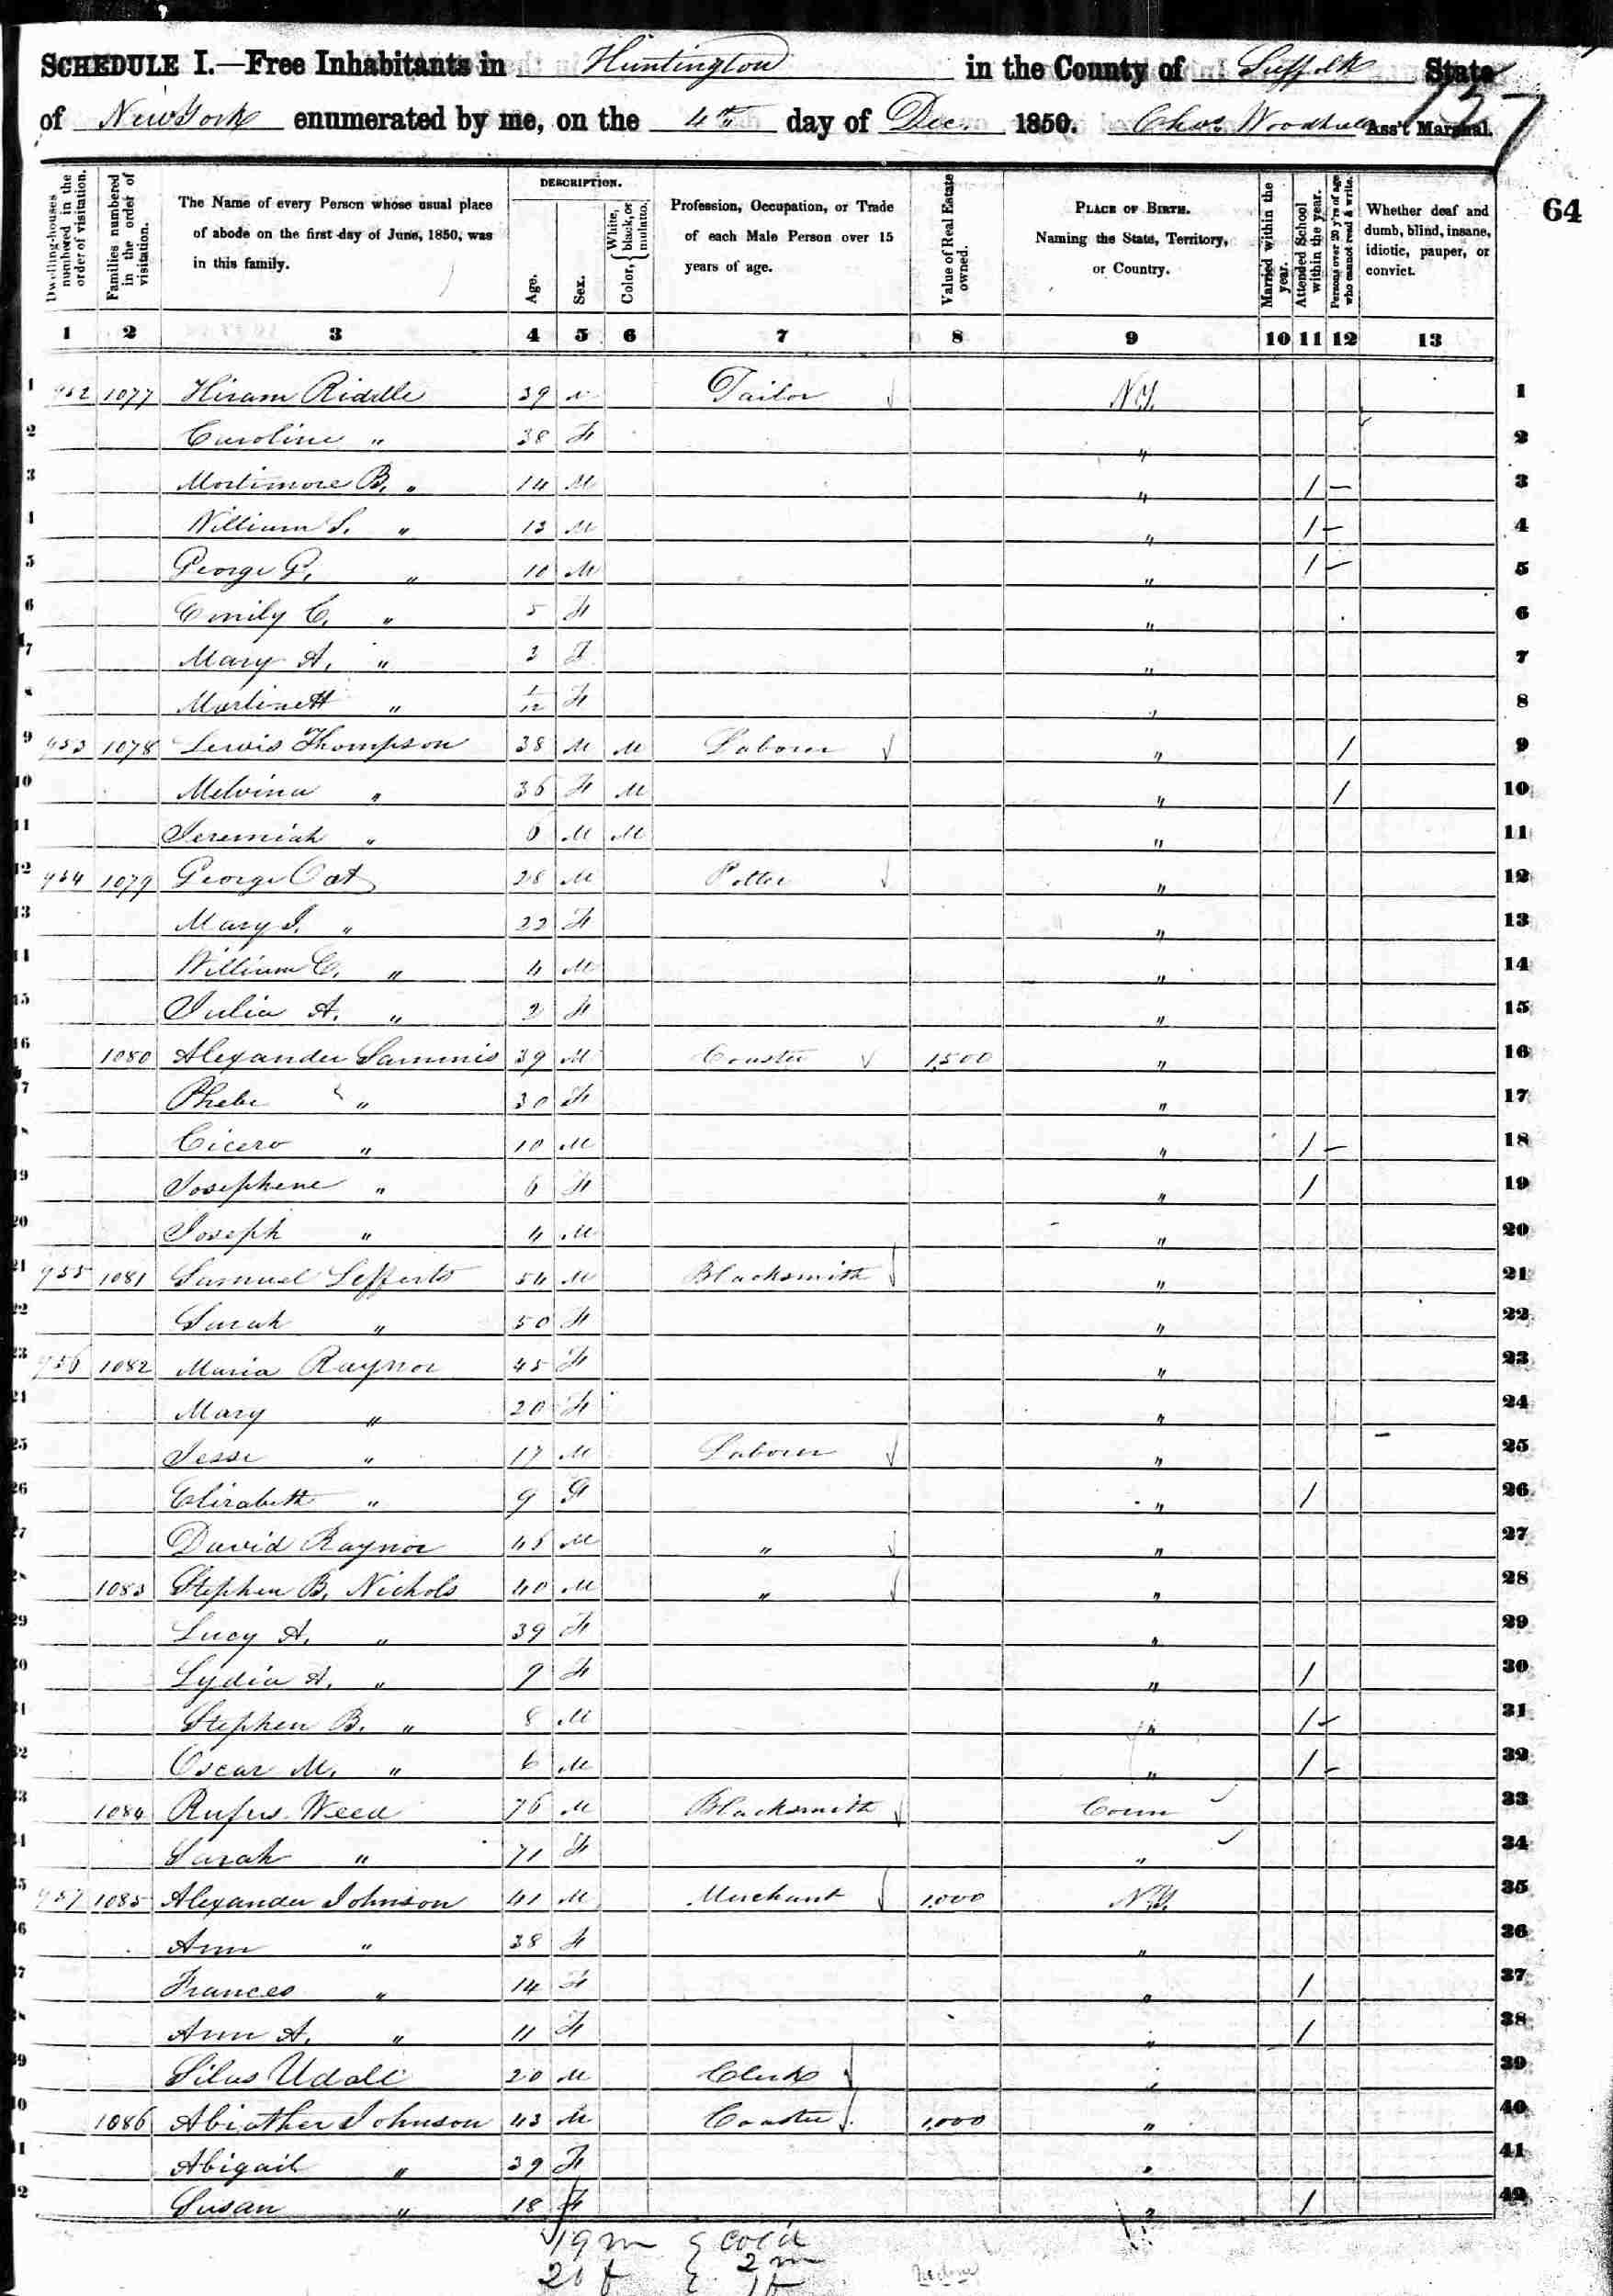 SCHEDULE I.—Free Inhabitants in Huntington in the County of Suffolk State
of New York enumerated by me, on the 4th day of Dec. 1850. Chas Woodhull Ass't Marshal.
157
64
Dwelling-houses numbered in the order of visitation.
Families numbered in the order of visitation.
The Name of every Person whose usual place of abode on the first day of June, 1850, was in this family.
DESCRIPTION.
Age.
Sex.
Color, { White, black, or mulatto.
Profession, Occupation, or Trade of each Male Person over 15 years of age.
Value of Real Estate owned.
PLACE OF BIRTH.
Naming the State, Territory, or Country.
Married within the year.
Attended School within the year.
Persons over 20 y'rs of age who cannot read & write.
Whether deaf and dumb, blind, insane, idiotic, pauper, or convict.
1 2 3 4 5 6 7 8 9 10 11 12 13
1 952 1077 Hiram Riddle 39 M Tailor N.Y. 1
2 Caroline " 38 F " 2
3 Mortimore B. " 14 M " / — 3
4 William S. " 13 M " / — 4
5 George P. " 10 M " / — 5
6 Emily C. " 5 F " 6
7 Mary A. " 3 F " 7
8 Martinett " 1/12 F " 8
9 953 1078 Lewis Thompson 38 M M Laborer " / 9
10 Melvina " 36 F M " / 10
11 Jeremiah " 6 M M " 11
12 954 1079 George Oat 28 M Potter " 12
13 Mary J. " 22 F " 13
14 William C. " 4 M " 14
15 Julia A. " 2 F " 15
16 1080 Alexander Sammis 39 M Coaster 1,500 " 16
17 Phebe " 30 F " 17
18 Cicero " 10 M " / — 18
19 Josephene " 6 F " / 19
20 Joseph " 4 M " 20
21 955 1081 Samuel Lefferts 54 M Blacksmith " 21
22 Sarah " 50 F " 22
23 956 1082 Maria Raynor 45 F " 23
24 Mary " 20 F " 24
25 Jesse " 17 M Laborer " 25
26 Elizabeth " 9 F " / 26
27 David Raynor 45 M " " 27
28 1083 Stephen B. Nichols 40 M " " 28
29 Lucy A. " 39 F " 29
30 Lydia A. " 9 F " / 30
31 Stephen B. " 8 M " / — 31
32 Oscar M. " 6 M " / — 32
33 1084 Rufus Weed 76 M Blacksmith Conn 33
34 Sarah " 71 F " 34
35 957 1085 Alexander Johnson 41 M Merchant 1,000 N.Y. 35
36 Ann " 38 F " 36
37 Frances " 14 F " / 37
38 Ann A. " 11 F " / 38
39 Silas Udall 20 M Clerk " 39
40 1086 Abiather Johnson 43 M Coaster 1,000 " 40
41 Abigail " 39 F " 41
42 Susan " 18 F " / 42
19 m col'd
20 f 2 m
1 f